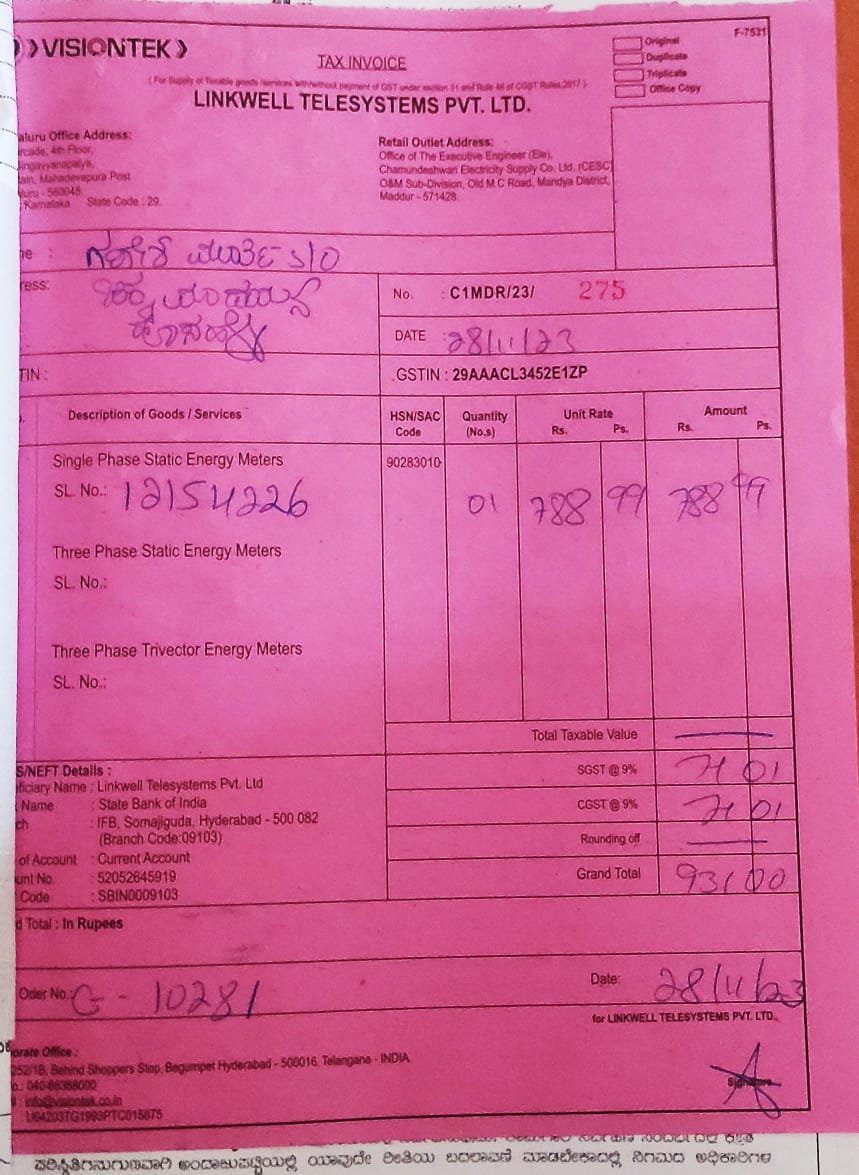 VISIONTEK
F-7531
Original
Duplicate
Triplicate
Office Copy
TAX INVOICE
( For Supply of Taxable goods /services With/without payment of GST under section 31 and Rule 46 of CGST Rules,2017 )
LINKWELL TELESYSTEMS PVT. LTD.
aluru Office Address:
rcade, 4th Floor,
ingayyanapalya,
ain, Mahadevapura Post
uru - 560048.
Karnataka State Code : 29.
Retail Outlet Address:
Office of The Executive Engineer (Ele),
Chamundeshwari Electricity Supply Co. Ltd. (CESC)
O&M Sub-Division, Old M.C Road, Mandya District,
Maddur - 571428.
ne : S/O
ress:
No. : C1MDR/23/ 275
DATE : 28/11/23
TIN :
GSTIN : 29AAACL3452E1ZP
Description of Goods / Services HSN/SAC Code Quantity (No.s) Unit Rate Rs. Ps. Amount Rs. Ps.
Single Phase Static Energy Meters 90283010
SL. No.: 12154226 01 788 99 788 99
Three Phase Static Energy Meters
SL. No.:
Three Phase Trivector Energy Meters
SL. No.:
Total Taxable Value
SGST @ 9% 71 01
CGST @ 9% 71 01
Rounding off
Grand Total 931 00
S/NEFT Details :
eficiary Name : Linkwell Telesystems Pvt. Ltd
Name : State Bank of India
ch : IFB, Somajiguda, Hyderabad - 500 082
(Branch Code:09103)
of Account : Current Account
unt No. : 52052645919
Code : SBIN0009103
d Total : In Rupees
Oder No.: G - 10281
Date: 28/11/23
for LINKWELL TELESYSTEMS PVT. LTD.,
orate Office :
252/1B, Behind Shoppers Stop, Begumpet Hyderabad - 500016, Telangana - INDIA
o.: 040-66388000
: info@visiontek.co.in
: U64203TG1993PTC015875
Signature
ಪರಿಸ್ಥಿತಿಗನುಗುಣವಾಗಿ ಅಂದಾಜುಪಟ್ಟಿಯಲ್ಲಿ ಯಾವುದೇ ರೀತಿಯ ಬದಲಾವಣೆ ಮಾಡಬೇಕಾದಲ್ಲಿ ನಿಗಮದ ಅಧಿಕಾರಿಗಳ